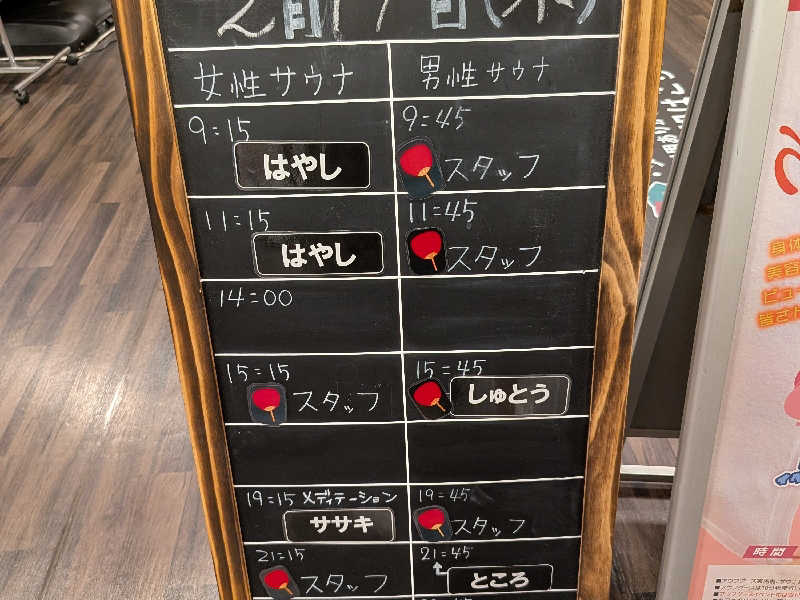 女性サウナ 男性サウナ
9:15 9:45
はやし スタッフ
11:15 11:45
はやし スタッフ
14:00
15:15 15:45
スタッフ しゅとう
19:15 メディテーション 19:45
ササキ スタッフ
21:15 21:45
スタッフ ところ
身体
美容
ビュー
皆さ
時間